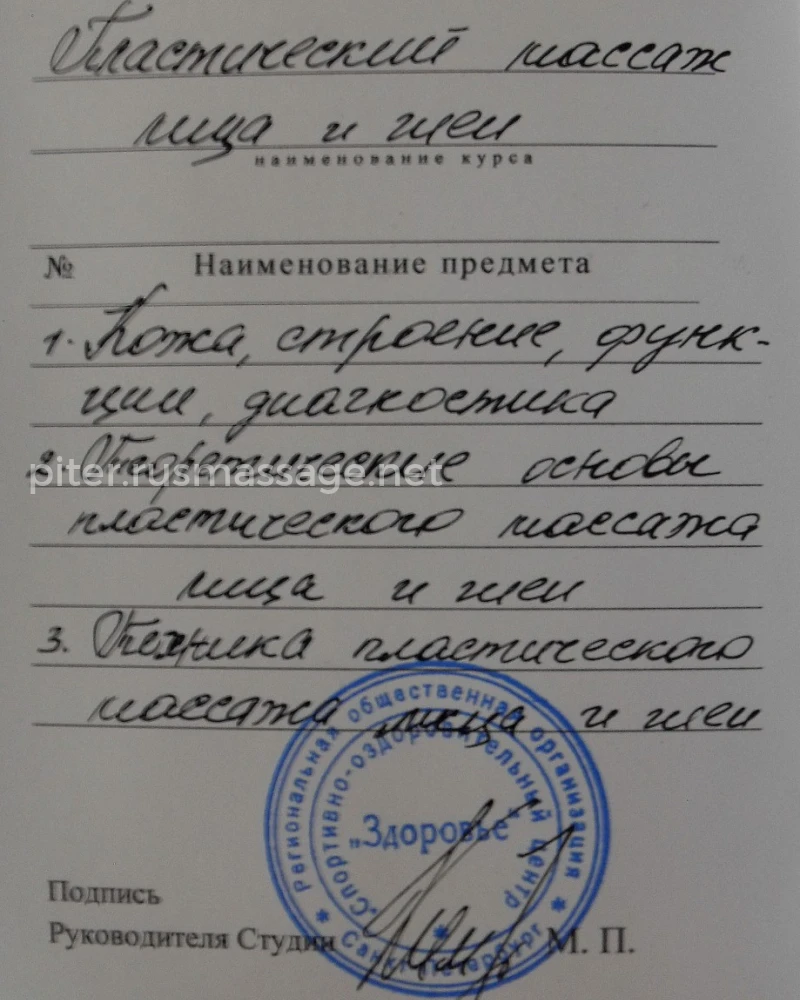 Пластический массаж
лица и шеи
наименование курса
№ Наименование предмета
1. Кожа, строение, функ-
ции, диагностика
2. Теоретические основы
piter.rusmassage.net
пластического массажа
лица и шеи
3. Техника пластического
массажа лица и шеи
Региональная общественная организация
Спортивно-оздоровительный центр
„Здоровье“
Санкт-Петербург
Подпись
Руководителя Студии М. П.